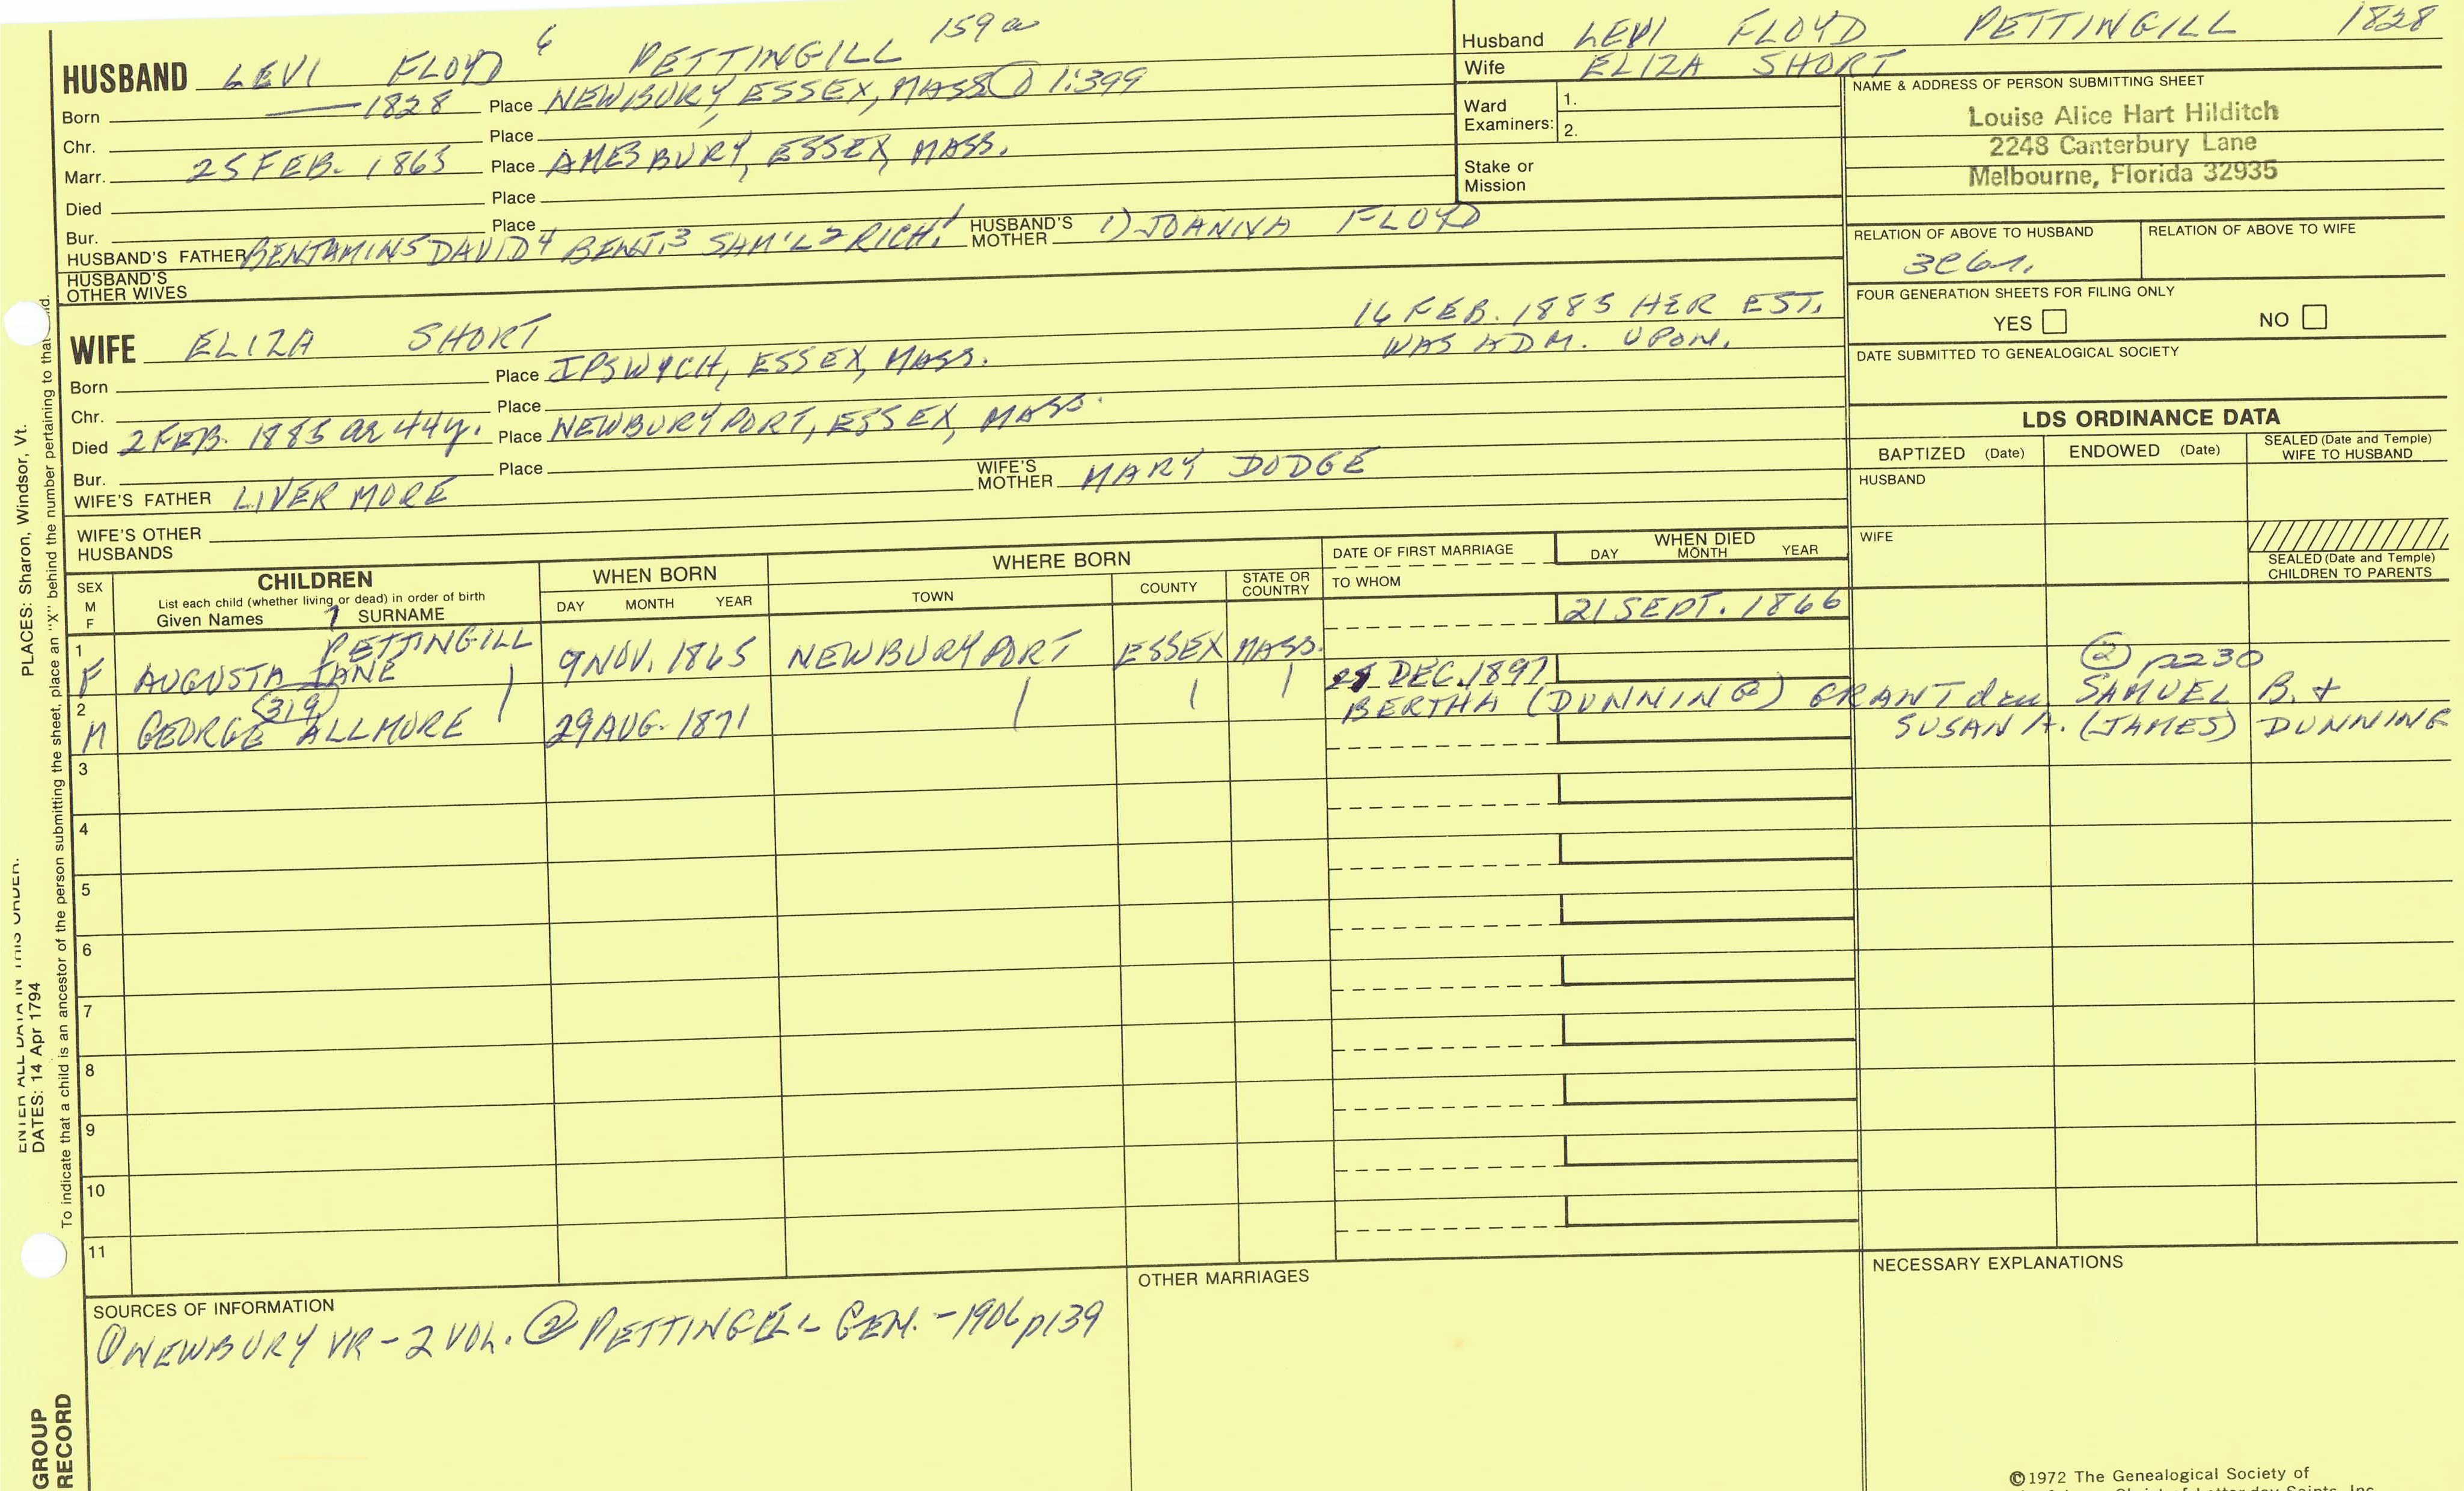 HUSBAND LEVI FLOYD 6 PETTINGILL 159a
Born —1828 Place NEWBURY, ESSEX, MASS ① 1:399
Chr. Place
Marr. 25 FEB. 1863 Place AMESBURY, ESSEX, MASS.
Died Place
Bur. Place
HUSBAND'S FATHER BENJAMIN5 DAVID4 BENJ.3 SAM'L2 RICH.1 HUSBAND'S MOTHER 1) JOANNA FLOYD
HUSBAND'S OTHER WIVES
WIFE ELIZA SHORT
16 FEB. 1885 HER EST.
WAS ADM. UPON.
Born Place IPSWICH, ESSEX, MASS.
Chr. Place
Died 2 FEB. 1885 ae 44y. Place NEWBURYPORT, ESSEX, MASS.
Bur. Place
WIFE'S FATHER LIVERMORE WIFE'S MOTHER MARY DODGE
WIFE'S OTHER HUSBANDS
Husband LEVI FLOYD PETTINGILL 1828
Wife ELIZA SHORT
Ward Examiners: 1.
2.
Stake or Mission
NAME & ADDRESS OF PERSON SUBMITTING SHEET
Louise Alice Hart Hilditch
2248 Canterbury Lane
Melbourne, Florida 32935
RELATION OF ABOVE TO HUSBAND RELATION OF ABOVE TO WIFE
FOUR GENERATION SHEETS FOR FILING ONLY
YES NO
DATE SUBMITTED TO GENEALOGICAL SOCIETY
LDS ORDINANCE DATA
BAPTIZED (Date) ENDOWED (Date) SEALED (Date and Temple) WIFE TO HUSBAND
HUSBAND
WIFE
SEALED (Date and Temple) CHILDREN TO PARENTS
SEX M F CHILDREN WHEN BORN WHERE BORN DATE OF FIRST MARRIAGE WHEN DIED
List each child (whether living or dead) in order of birth
Given Names 7 SURNAME DAY MONTH YEAR TOWN COUNTY STATE OR COUNTRY TO WHOM DAY MONTH YEAR
1 F AUGUSTA JANE PETTINGILL 9 NOV. 1865 NEWBURYPORT ESSEX MASS. 21 SEPT. 1866
2 M GEORGE ALLMORE (319) 29 AUG. 1871 DEC. 1897 ② p230
BERTHA (DUNNING) GRANT dau. SAMUEL B. +
SUSAN A. (JAMES) DUNNING
3
4
5
6
7
8
9
10
11
SOURCES OF INFORMATION
① NEWBURY VR - 2 VOL. ② PETTINGELL GEN. - 1906 p139
OTHER MARRIAGES
NECESSARY EXPLANATIONS
©1972 The Genealogical Society of
PLACES: Sharon, Windsor, Vt.
ENTER ALL DATA IN THIS ORDER:
DATES: 14 Apr 1794
To indicate that a child is an ancestor of the person submitting the sheet, place an "X" behind the number pertaining to that
GROUP
RECORD